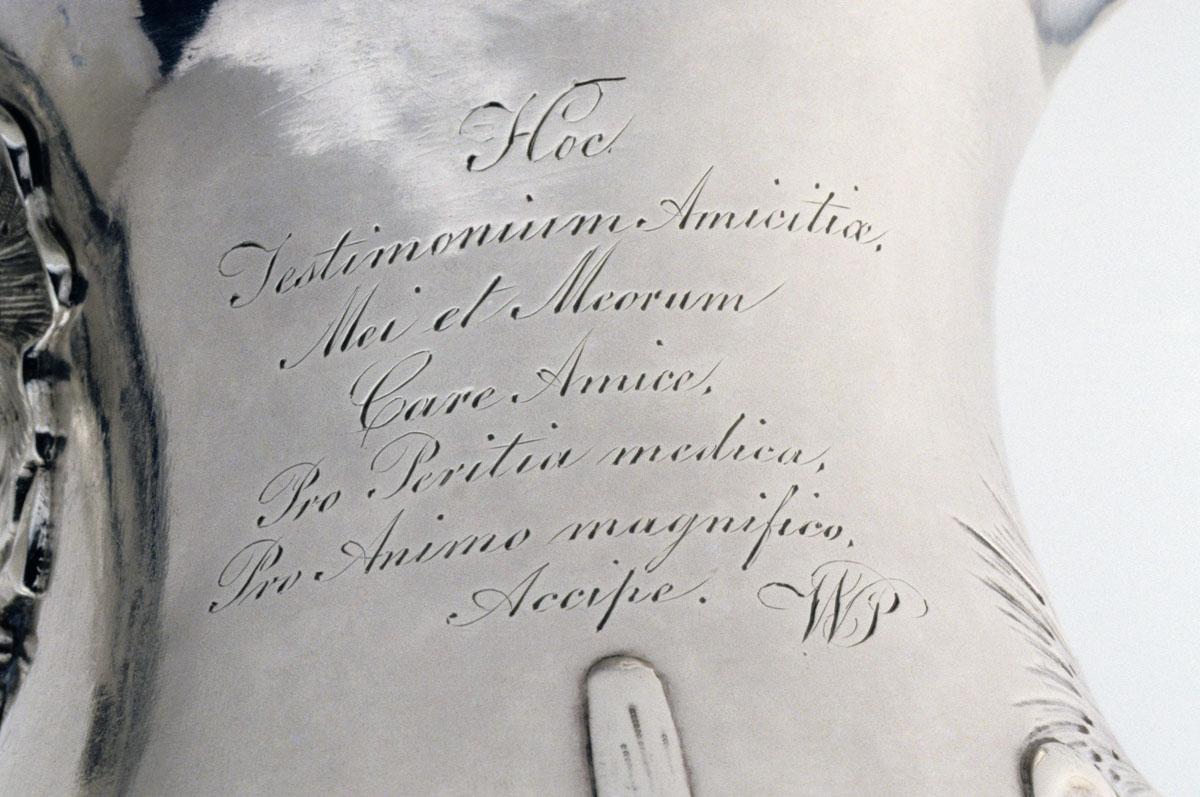 Hoc
Testimonium Amicitiæ,
Mei et Meorum
Care Amice,
Pro Peritia medica,
Pro Animo magnifico,
Accipe. WP